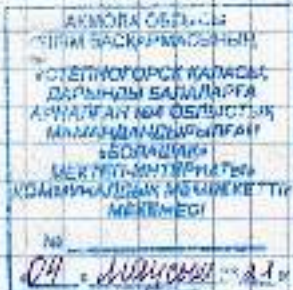 АҚМОЛА ОБЛЫСЫ
БІЛІМ БАСҚАРМАСЫНЫҢ
«СТЕПНОГОРСК ҚАЛАСЫ,
ДАРЫНДЫ БАЛАЛАРҒА
АРНАЛҒАН №4 ОБЛЫСТЫҚ
МАМАНДАНДЫРЫЛҒАН
«БОЛАШАҚ»
МЕКТЕП-ИНТЕРНАТЫ»
КОММУНАЛДЫҚ МЕМЛЕКЕТТІК
МЕКЕМЕСІ
№
04 маусым 21